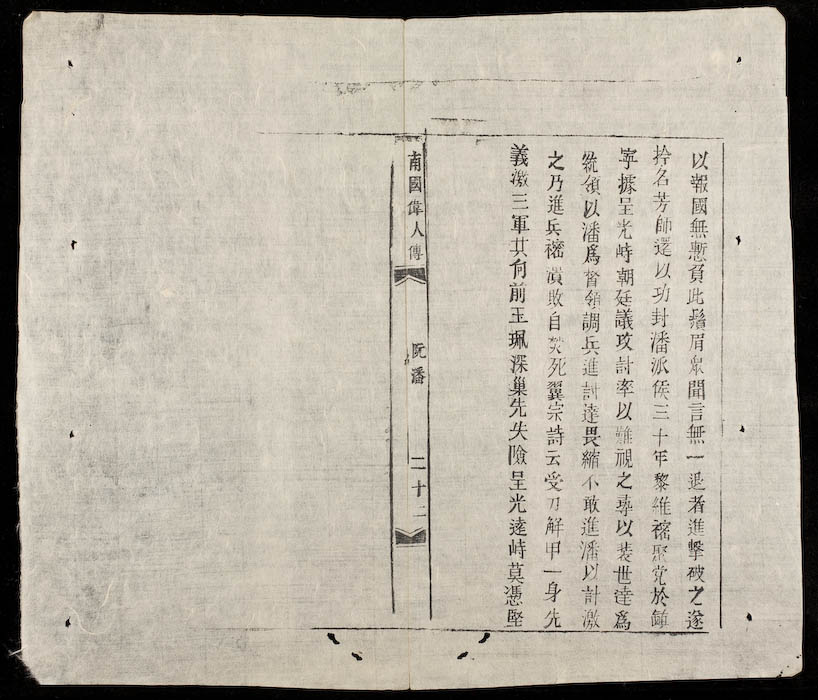 以報國無慙負此鬚眉衆聞言無一退者進擊破之遂
拎名芳帥還以功封潘派侯三十年黎維𥛉聚党於鎮
寧據呈光峙朝廷議攻討率以難視之尋以裴世達爲
統領以潘爲督領調兵進討達畏縮不敢進潘以計激
之乃進兵𥛉潰敗自焚死翼宗詩云受刀解甲一身先
義激三軍共向前玉珮深巢先失險呈光逵峙莫憑堅
南國偉人傳
阮潘
二十二